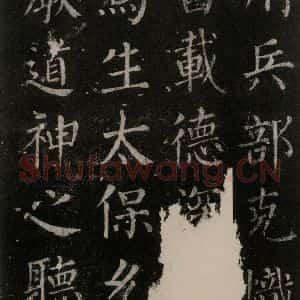 兵部克熾
載德
生太保
道神之聽
Shufawang.CN